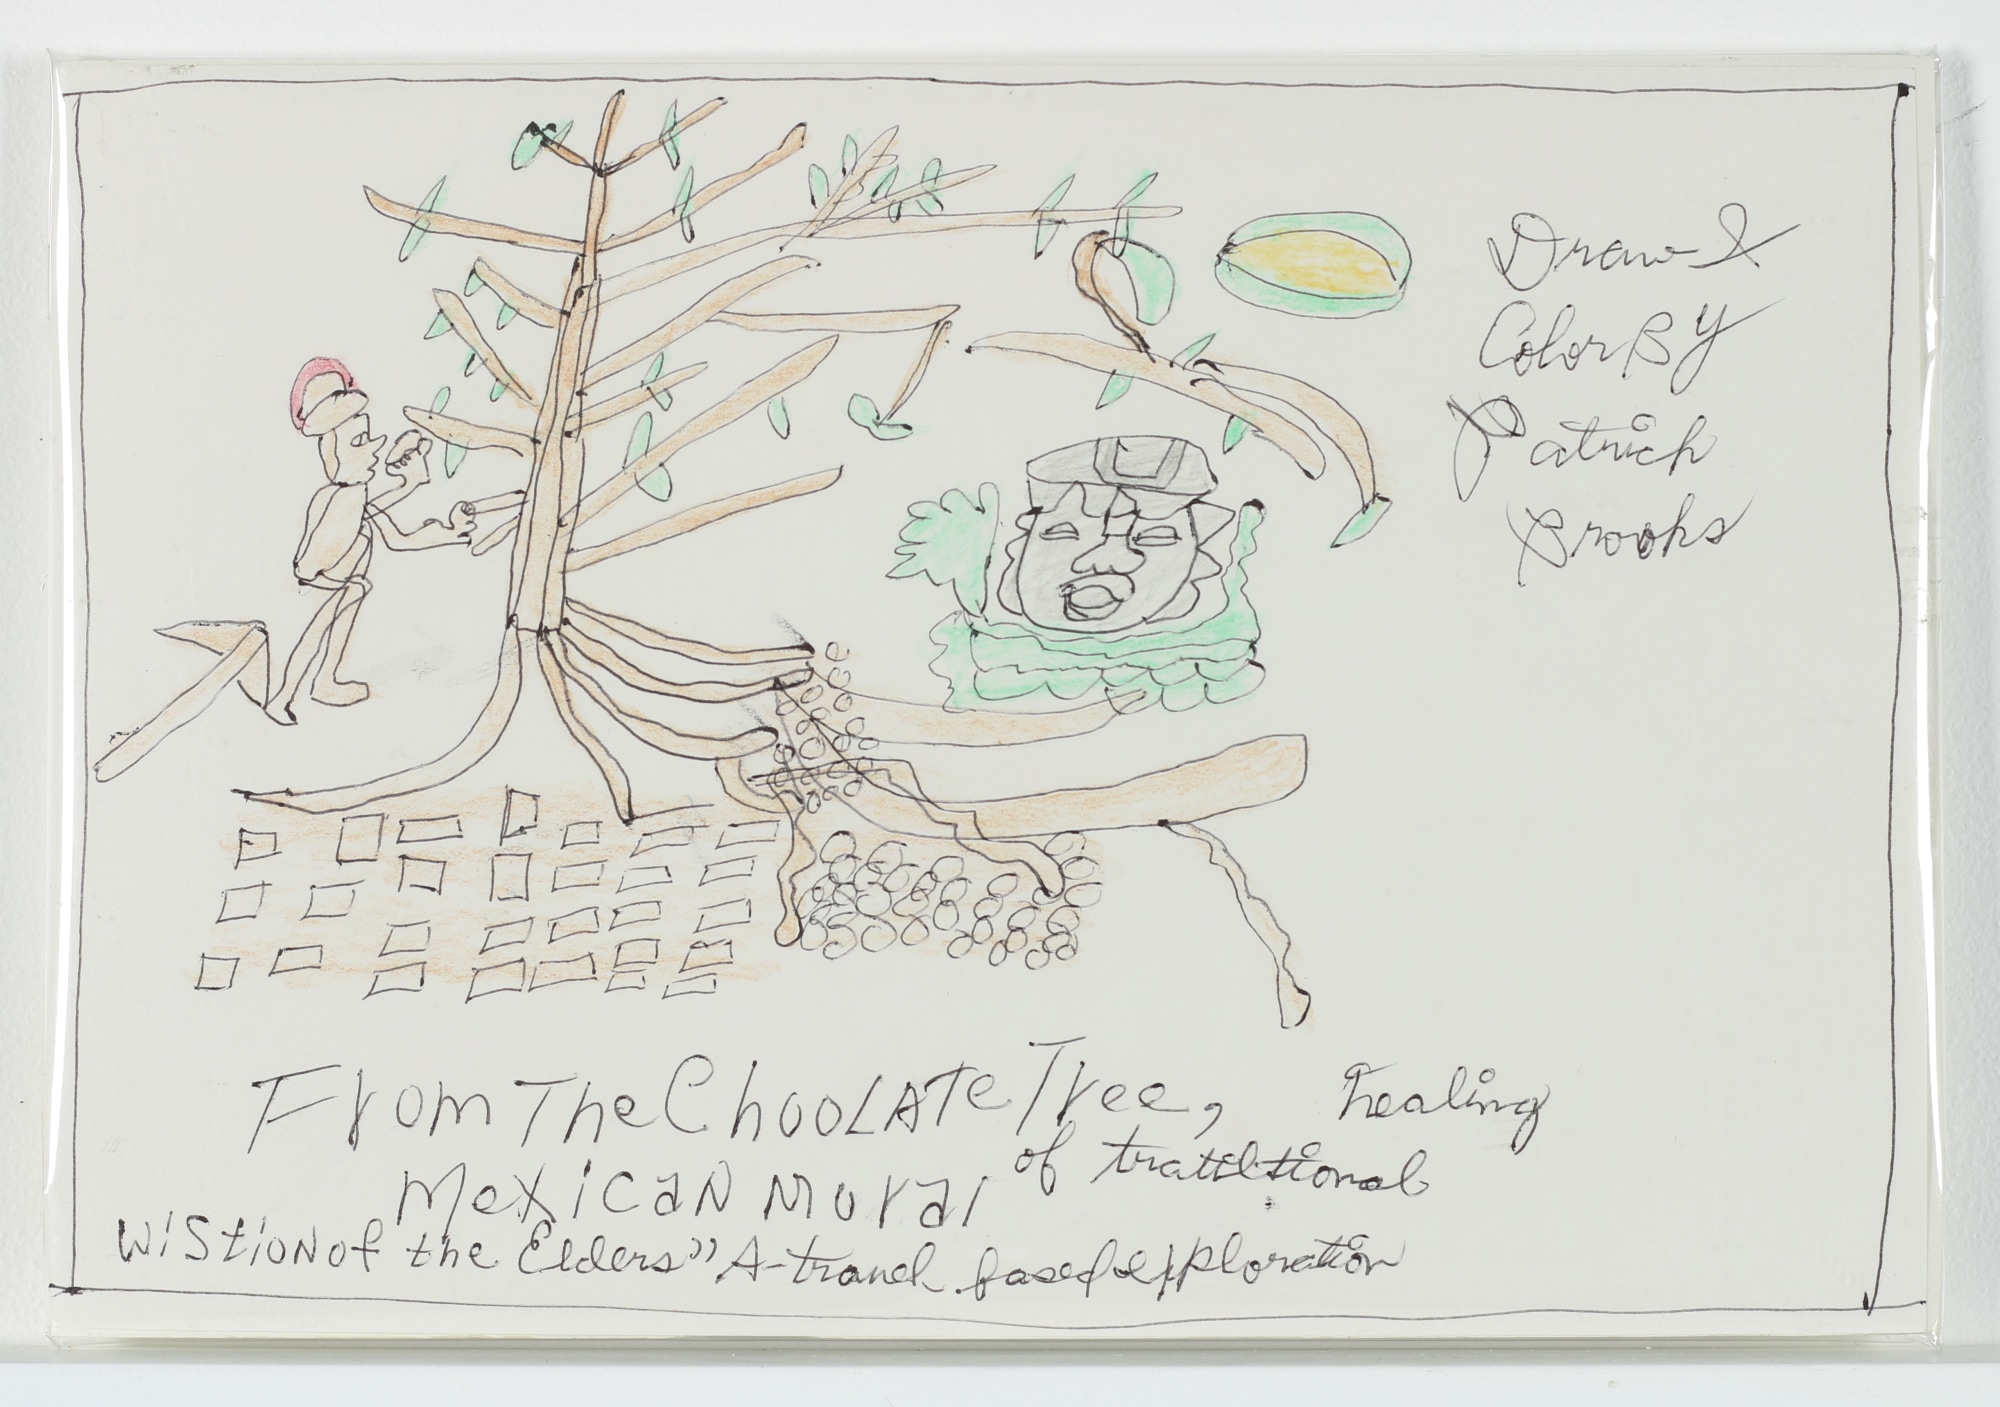 Draw &
Color By
Patrick
Brooks
From The ChooLATe Tree,
healing
Mexican Mural
of tratiltional
wiStioN of the Elders" A-travel based exploration